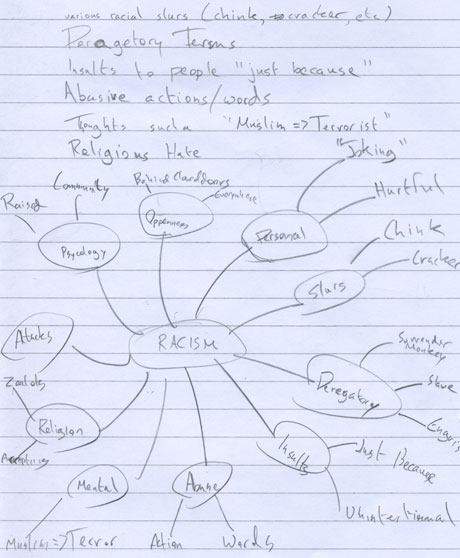 various racial slurs (chink, cracker, etc)
Deragetory Terms
Insults to people "just because"
Abusive actions/words
Thoughts such a "Muslim => Terrorist"
Religious Hate
"Joking"
Behind Closed doors
Everywhere
Community
Raised
Hurtful
Openness
Personal
Psycology
Chink
Slurs
Cracker
Attacks
RACISM
Surrender Monkey
Zealots
Deregatory
Slave
Religion
Insults
Just Because
Mental
Abuse
Unintentional
Muslim => Terror
Action
Words